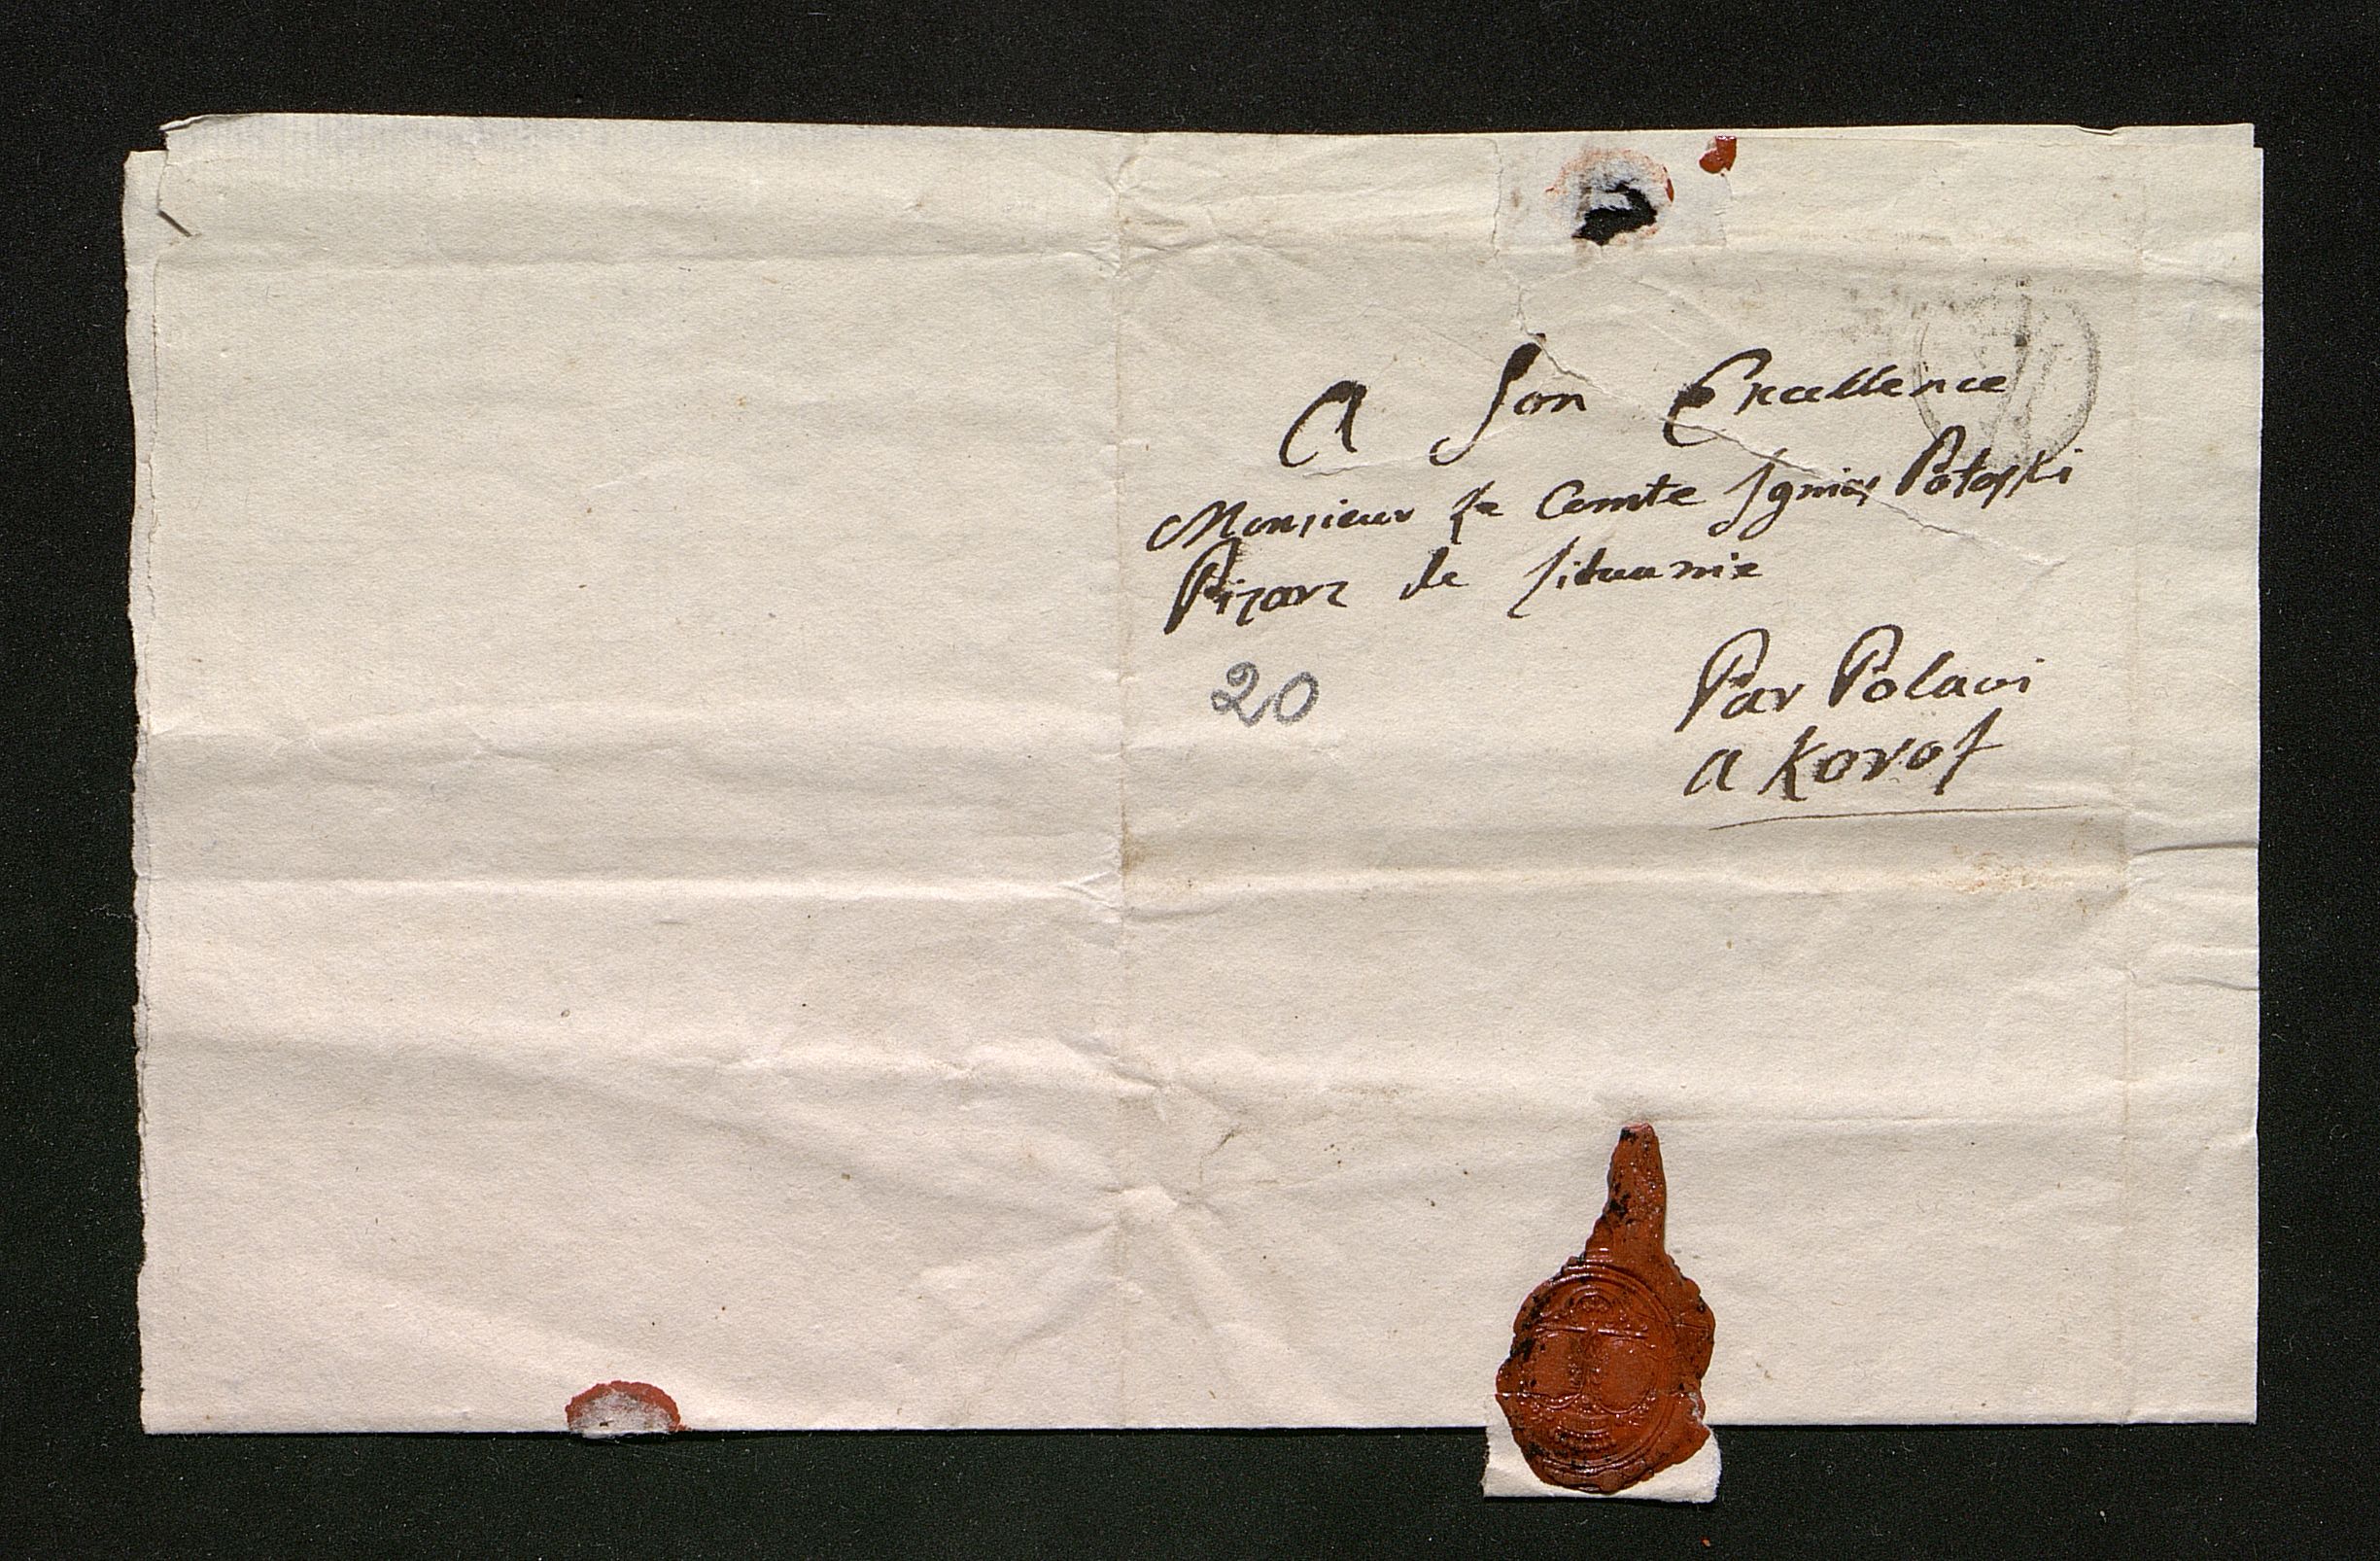 A Son Excellence
Monsieur le Comte Ignias Potoski
Pizarz de lituanie
20
Par Polawi
a Korof